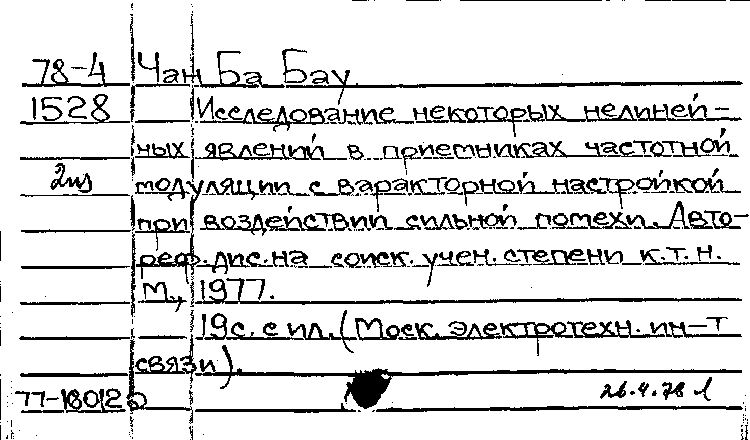 78-4 Чан Ба Бау
1528 Исследование некоторых нелиней-
ных явлений в приемниках частотной
2из модуляции с варакторной настройкой
при воздействии сильной помехи. Авто-
реф. дис. на соиск. учен. степени к.т.н.
М., 1977.
19с. с ил. (Моск. электротехн. ин-т
связи).
26.4.78